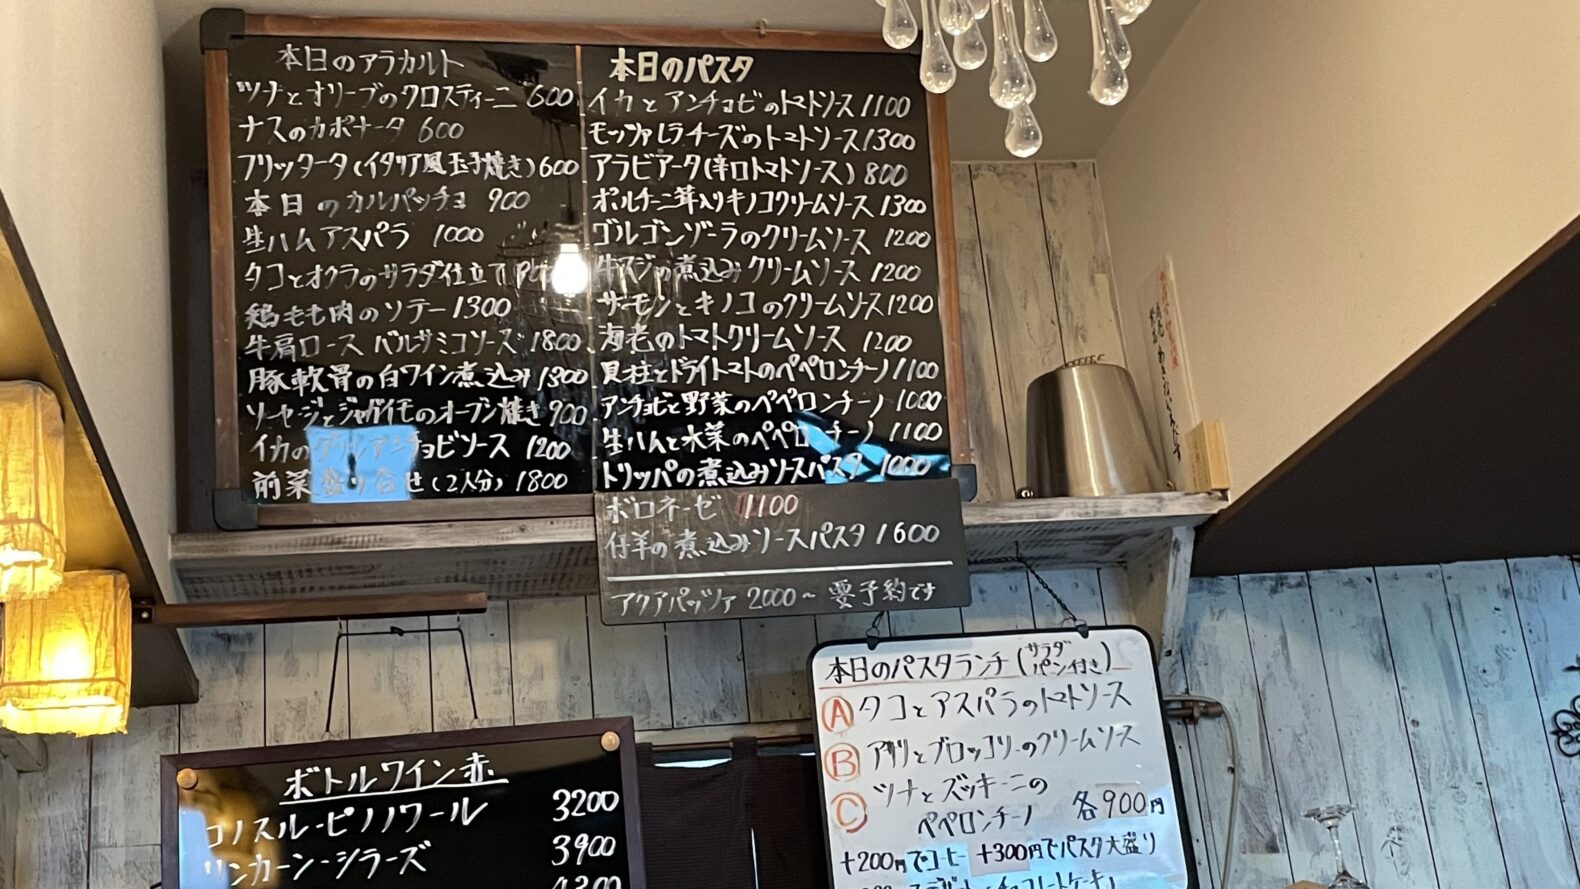 本日のアラカルト
ツナとオリーブのクロスティーニ 600
ナスのカポナータ 600
フリッタータ(イタリア風玉子焼き)600
本日のカルパッチョ 900
生ハムアスパラ 1000
タコとオクラのサラダ仕立て
鶏もも肉のソテー1300
牛肩ロース バルサミコソース 1800
豚軟骨の白ワイン煮込み1300
ソーセージとジャガイモのオーブン焼き 900
イカのグリルアンチョビソース 1200
前菜盛り合せ(2人分)1800
本日のパスタ
イカとアンチョビのトマトソース1100
モッツァレラチーズのトマトソース1300
アラビアータ(辛口トマトソース)800
ポルチーニ茸入りキノコクリームソース1300
ゴルゴンゾーラのクリームソース 1200
牛スジの煮込みクリームソース 1200
サーモンとキノコのクリームソース1200
海老のトマトクリームソース 1200
貝柱とドライトマトのペペロンチーノ1100
アンチョビと野菜のペペロンチーノ 1000
生ハムと水菜のペペロンチーノ 1100
トリッパの煮込みソースパスタ 1000
ボロネーゼ 1100
仔羊の煮込みソースパスタ 1600
アクアパッツァ 2000~要予約です
本日のパスタランチ(サラダ パン付き)
Ⓐ タコとアスパラのトマトソース
Ⓑ アサリとブロッコリーのクリームソース
Ⓒ ツナとズッキーニの
ペペロンチーノ 各900円
+200円でコーヒー +300円でパスタ大盛り
ボトルワイン赤
コノスル-ピノノワール 3200
リンカーン-シラーズ 3900